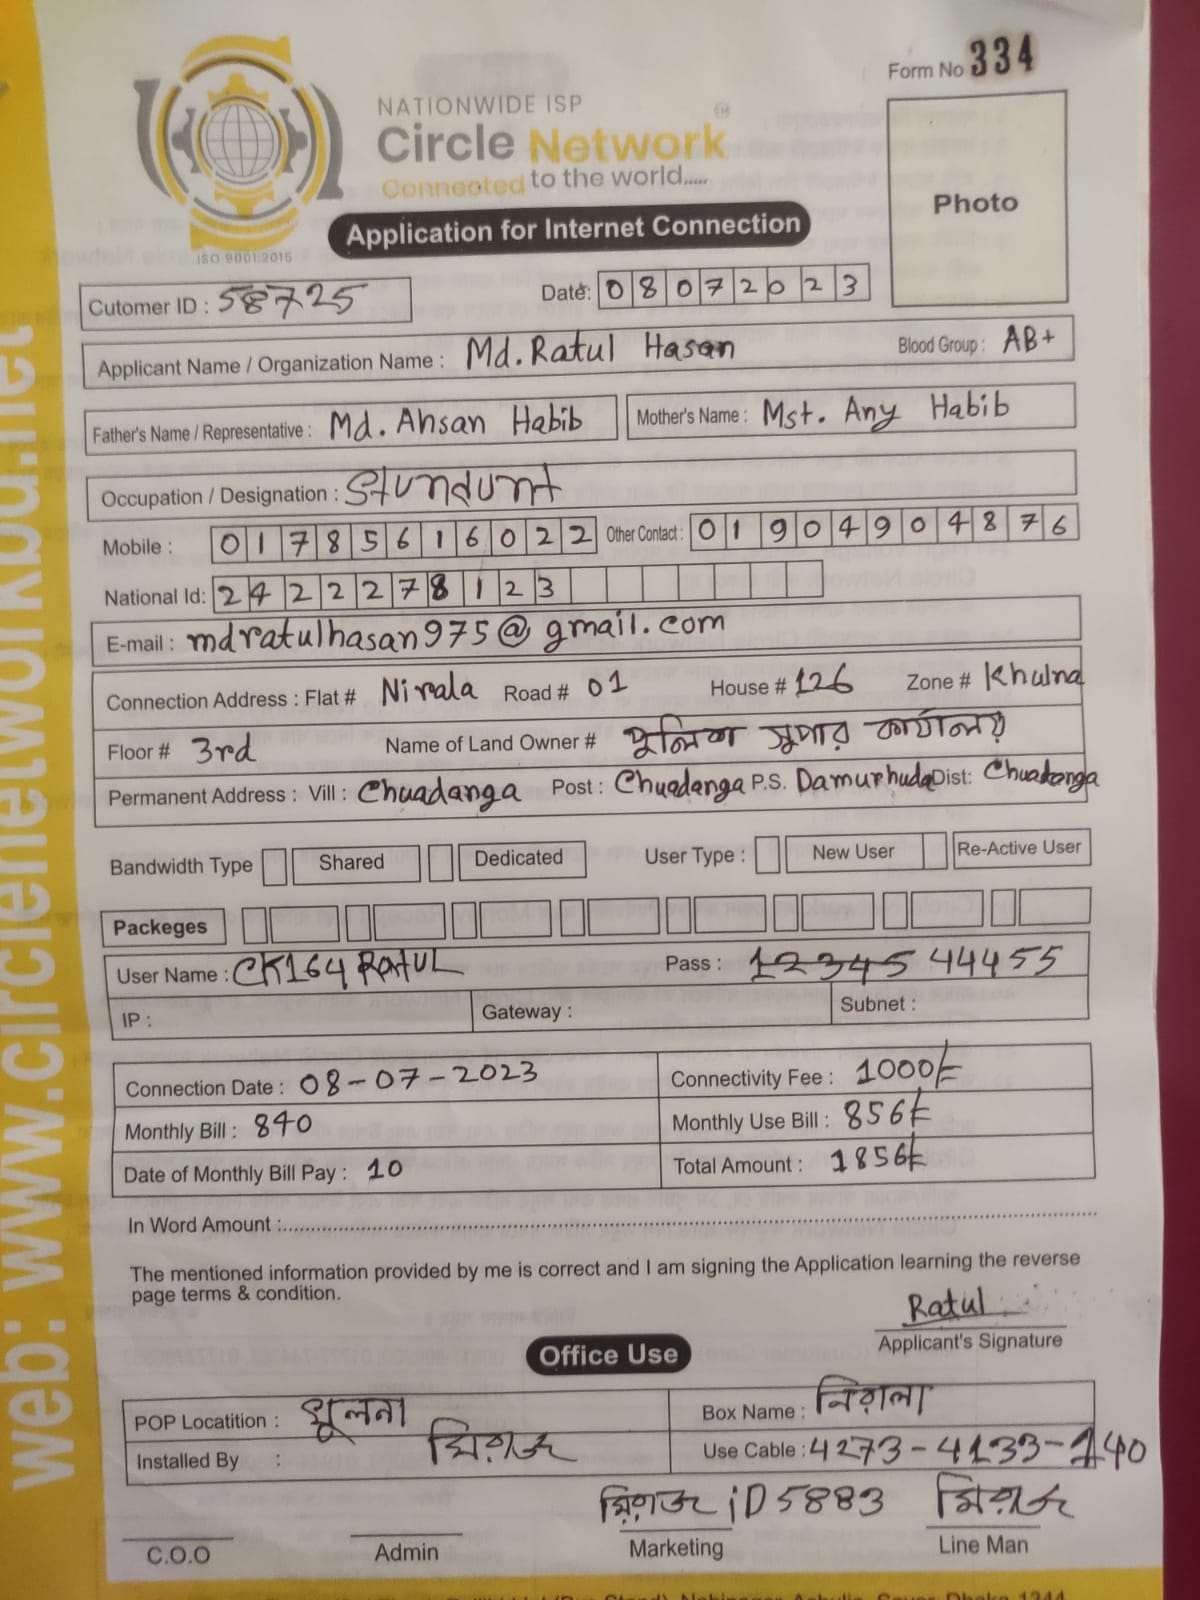 Form No 334
NATIONWIDE ISP
Circle Network
Connected to the world.....
ISO 9001:2015
Application for Internet Connection
Photo
Cutomer ID : 58725
Date: 08072023
Applicant Name / Organization Name : Md. Ratul Hasan Blood Group : AB+
Father's Name / Representative : Md. Ahsan Habib Mother's Name : Mst. Any Habib
Occupation / Designation : Stundunt
Mobile : 01785616022 Other Contact : 01904904876
National Id: 2422278123
E-mail : mdratulhasan975@gmail.com
Connection Address : Flat # Nirala Road # 01 House # 126 Zone # Khulna
Floor # 3rd Name of Land Owner # পুলিশ সুপার কার্যালয়
Permanent Address : Vill : Chuadanga Post : Chuadanga P.S. Damurhuda Dist: Chuadanga
Bandwidth Type Shared Dedicated User Type : New User Re-Active User
Packeges
User Name : CK164 Ratul Pass : 12345 44455
IP : Gateway : Subnet :
Connection Date : 08-07-2023 Connectivity Fee : 1000/-
Monthly Bill : 840 Monthly Use Bill : 856/-
Date of Monthly Bill Pay : 10 Total Amount : 1856/-
In Word Amount :
The mentioned information provided by me is correct and I am signing the Application learning the reverse
page terms & condition.
Ratul
Applicant's Signature
Office Use
POP Locatition : খুলনা Box Name : নিরালা
Installed By : মিরাজ Use Cable : 4273-4133-140
মিরাজ iD 5883 মিরাজ
C.O.O Admin Marketing Line Man
web: www.circlenetworkbd.net